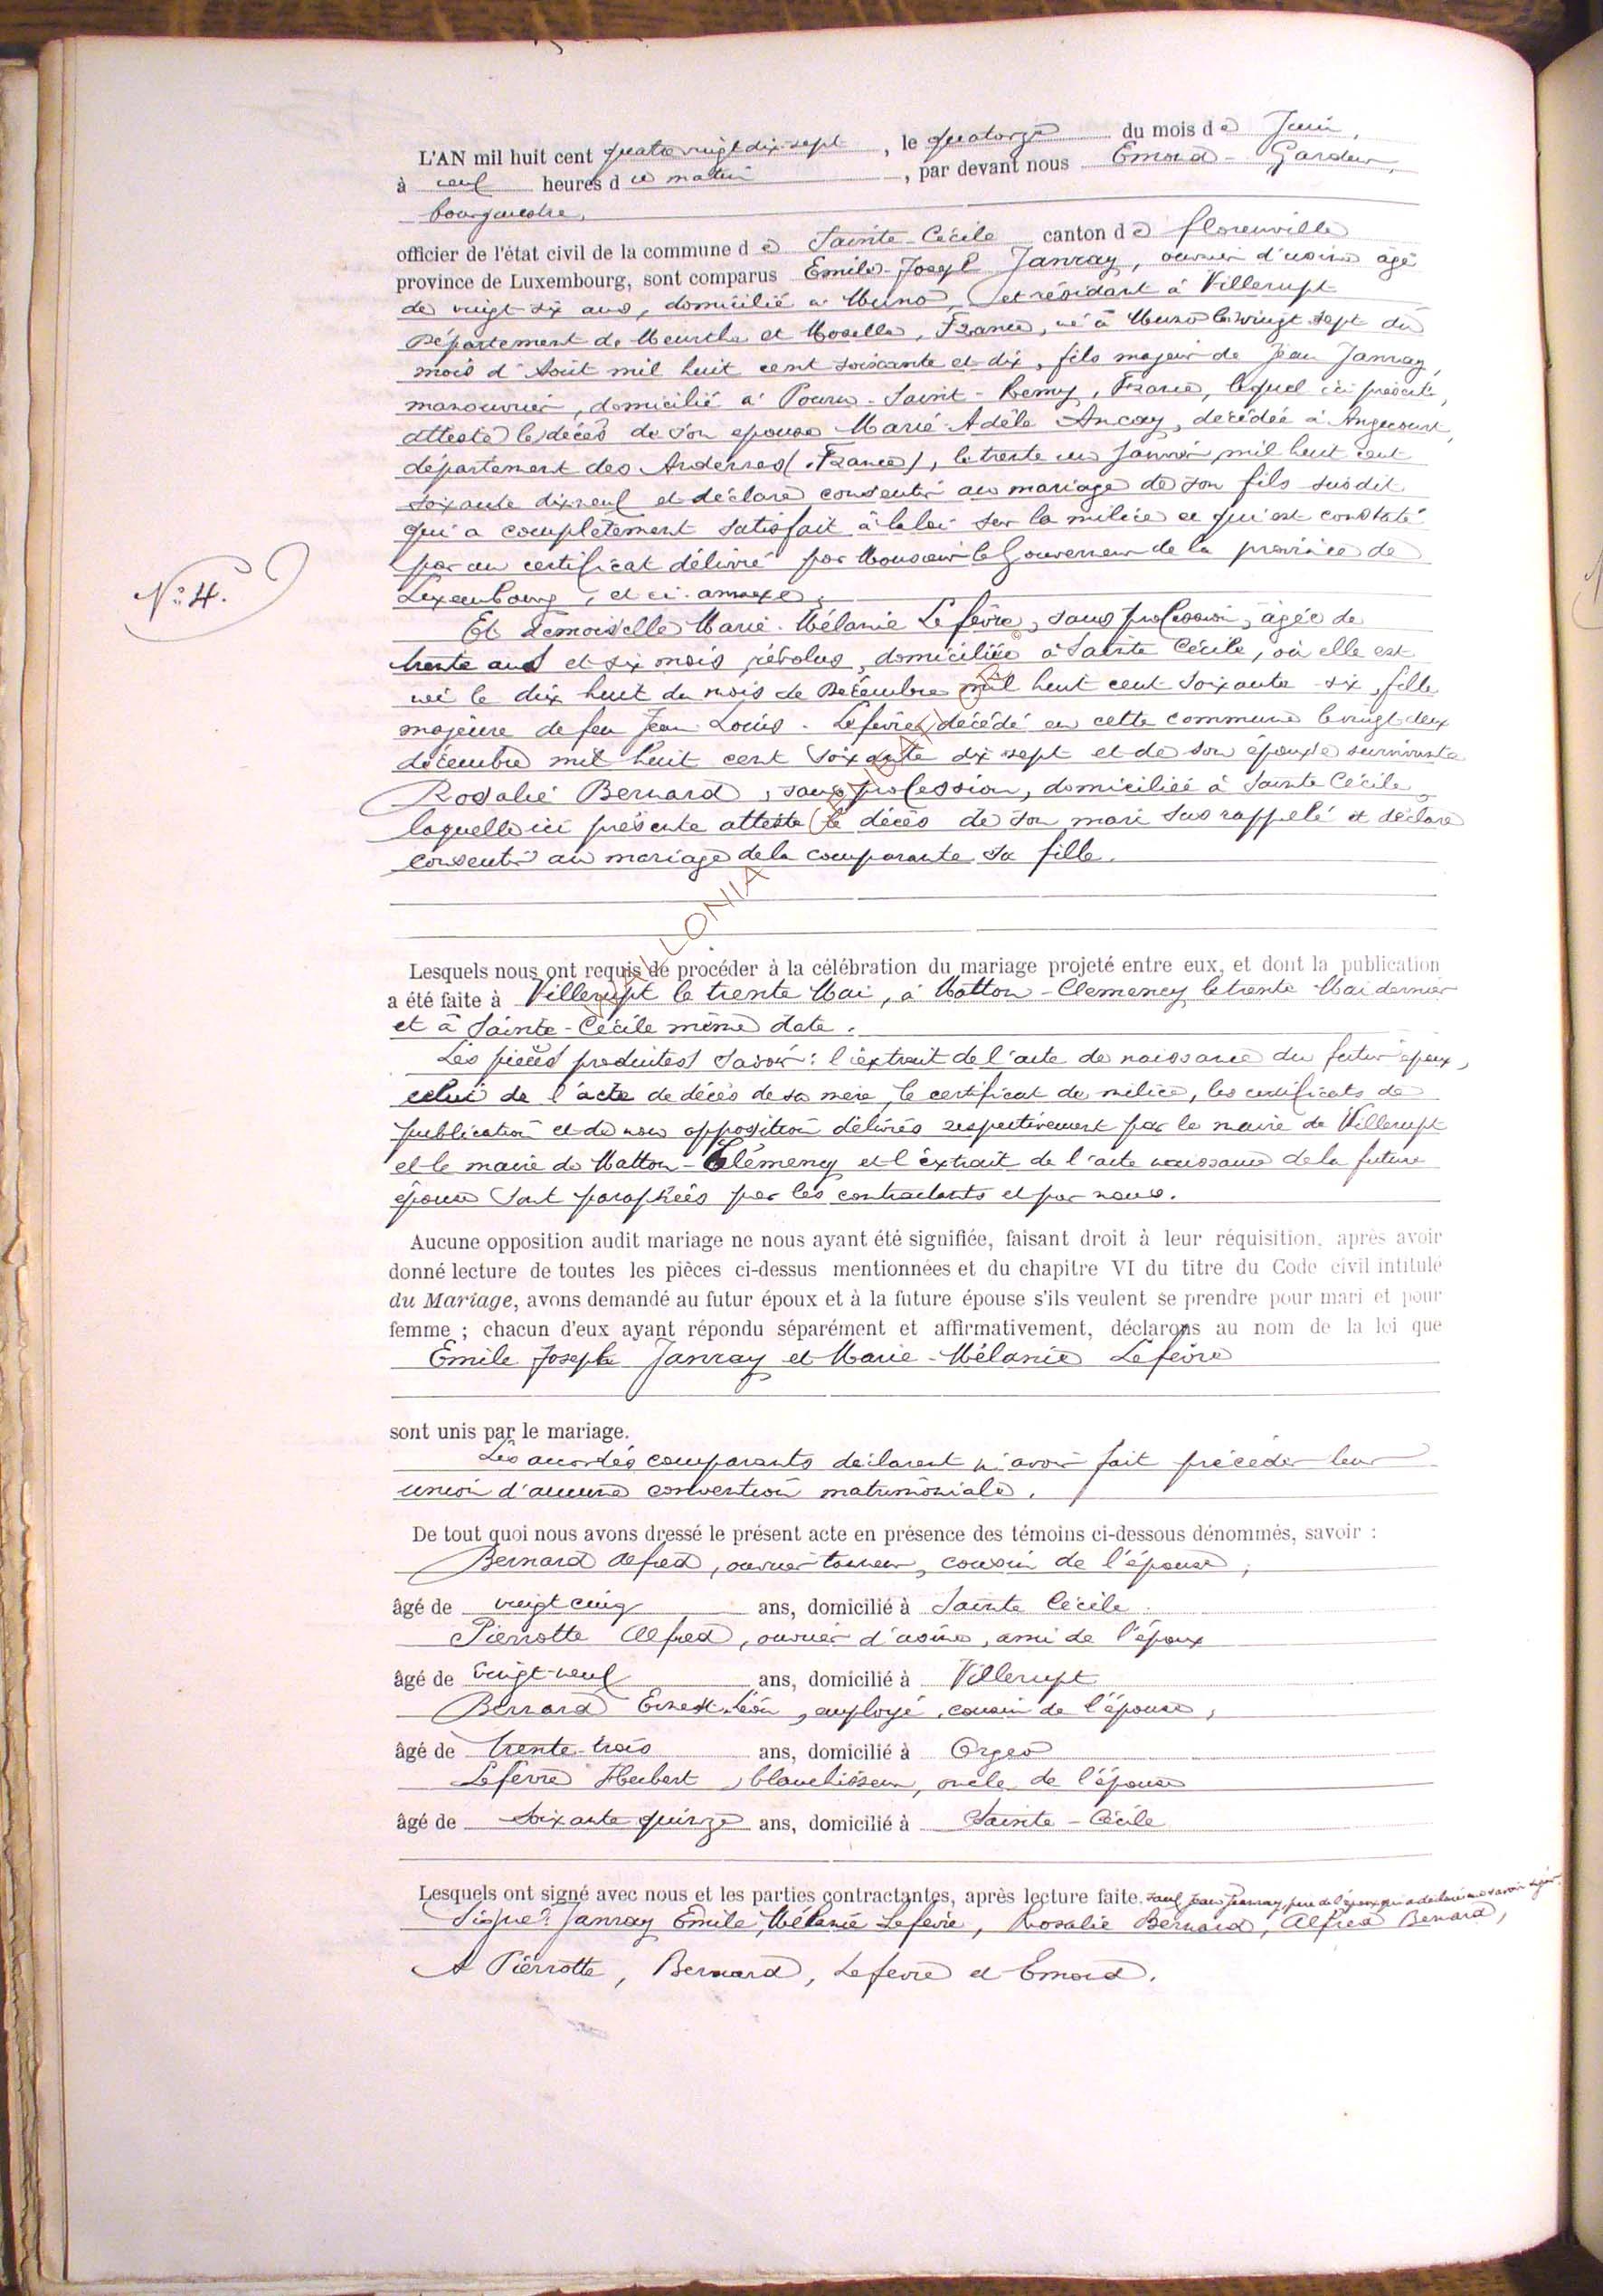 L'AN mil huit cent quatre vingt dix-sept, le quatorze du mois de Juin,
à neuf heures du matin, par devant nous Emond - Gardeur,
bourgmestre,
officier de l'état civil de la commune de Sainte-Cécile canton de florenville
province de Luxembourg, sont comparus Emile-Joseph Janray, ouvrier d'usine âgé
de vingt-six ans, domicilié à Muno, et résidant à Villerupt
Département de Meurthe et Moselle, France, né à Muno le vingt sept du
mois d'Août mil huit cent soixante et dix, fils majeur de Jean Janray,
manouvrier, domicilié à Pouru-Saint-Remy, France, lequel ici présent,
atteste le décès de son épouse Marie-Adèle Ancay, décédée à Angecourt,
département des Ardennes (France), le trente un Janvier mil huit cent
soixante dix neuf et déclare consentir au mariage de son fils susdit
qui a complètement satisfait à la loi sur la milice ce qui est constaté
par un certificat délivré par Monsieur le Gouverneur de la province de
Luxembourg, et ci-annexé.
N° 4.
Et Demoiselle Marie-Mélanie Lefèvre, sans profession, âgée de
trente ans et six mois révolus, domiciliée à Sainte Cécile, où elle est
née le dix huit du mois de Décembre mil huit cent soixante-six, fille
majeure de feu Jean-Louis-Lefèvre décédé en cette commune le vingt-deux
décembre mil huit cent soixante dix sept et de son épouse survivante
Rosalie Bernard, sans profession, domiciliée à Sainte Cécile,
laquelle ici présente atteste le décès de son mari sus rappelé et déclare
consentir au mariage de la comparante sa fille.
Lesquels nous ont requis de procéder à la célébration du mariage projeté entre eux, et dont la publication
a été faite à Villerupt le trente Mai, à Matton-Clemency le trente Mai dernier
et à Sainte-Cécile même date.
Les pièces produites savoir: l'extrait de l'acte de naissance du futur époux,
celui de l'acte de décès de sa mère, le certificat de milice, les certificats de
publication et de non opposition délivrés respectivement par le maire de Villerupt
et le maire de Matton-Clémency et l'extrait de l'acte naissance de la future
épouse sont paraphées par les contractants et par nous.
Aucune opposition audit mariage ne nous ayant été signifiée, faisant droit à leur réquisition, après avoir
donné lecture de toutes les pièces ci-dessus mentionnées et du chapitre VI du titre du Code civil intitulé
du Mariage, avons demandé au futur époux et à la future épouse s'ils veulent se prendre pour mari et pour
femme ; chacun d'eux ayant répondu séparément et affirmativement, déclarons au nom de la loi que
Emile Joseph Janray et Marie-Mélanie Lefèvre
sont unis par le mariage.
Les accordés comparants déclarent n'avoir fait précéder leur
union d'aucune convention matrimoniale.
De tout quoi nous avons dressé le présent acte en présence des témoins ci-dessous dénommés, savoir :
Bernard Alfred, ouvrier tanneur, cousin de l'épouse,
âgé de vingt cinq ans, domicilié à Sainte Cécile.
Pierrotte Alfred, ouvrier d'usine, ami de l'époux
âgé de vingt-neuf ans, domicilié à Villerupt
Bernard Ernest-Léon, employé, cousin de l'épouse,
âgé de trente-trois ans, domicilié à Orgeo
Lefèvre Hubert, blanchisseur, oncle de l'épouse
âgé de soixante quinze ans, domicilié à Sainte-Cécile
Lesquels ont signé avec nous et les parties contractantes, après lecture faite. sauf Jean Janray, père de l'époux qui a déclaré ne savoir signer.
Signé: Janray Emile, Mélanie Lefèvre, Rosalie Bernard, Alfred Bernard,
A Pierrotte, Bernard, Lefevre et Emond.